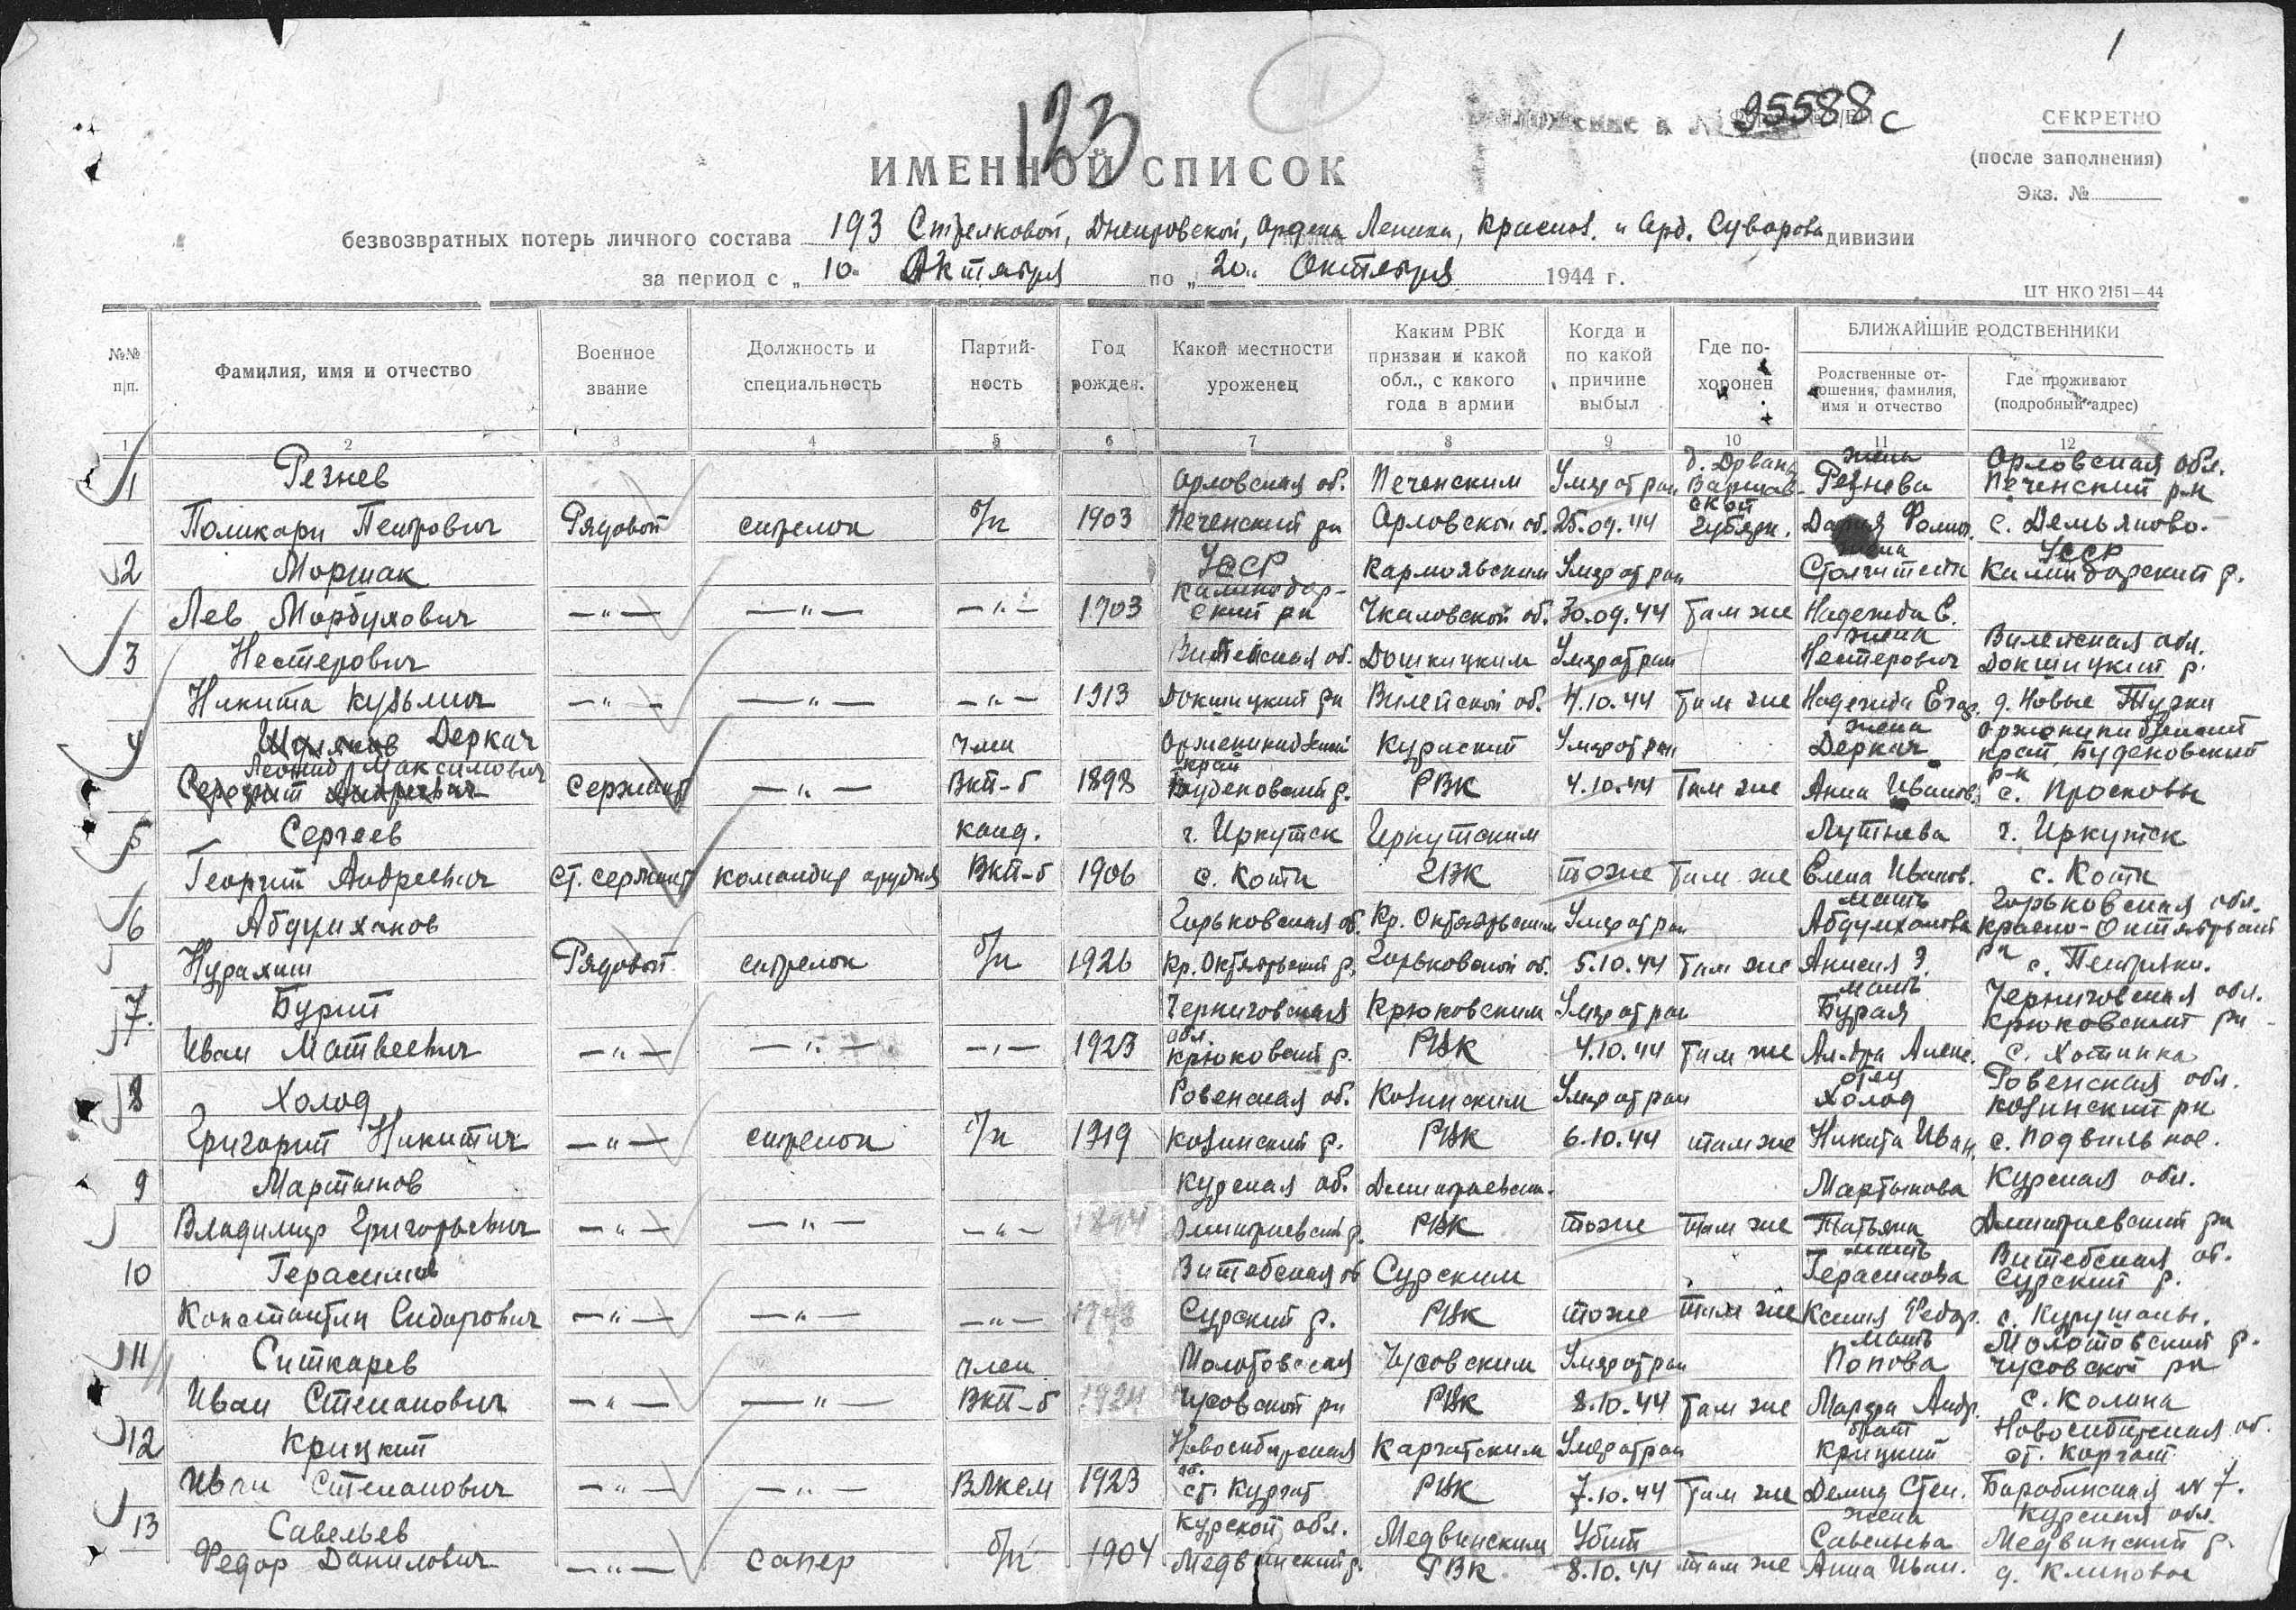 1
123
Приложение к № 95588с
СЕКРЕТНО
(после заполнения)
Экз. №
ИМЕННОЙ СПИСОК
безвозвратных потерь личного состава 193 Стрелковой, Днепровской, Ордена Ленина, Краснозн. и Орд. Суворова дивизии
за период с „10„ Октября по „20„ Октября 1944 г.
ЦТ НКО 2151—44
№№ п/п. Фамилия, имя и отчество Военное звание Должность и специальность Партийность Год рожден. Какой местности уроженец Каким РВК призван и какой обл., с какого года в армии Когда и по какой причине выбыл Где похоронен БЛИЖАЙШИЕ РОДСТВЕННИКИ
Родственные отношения, фамилия, имя и отчество Где проживают (подробный адрес)
1 2 3 4 5 6 7 8 9 10 11 12
1 Резнев Орловская об. Печенским Умер от ран жена Резнева Орловская обл. Печенский р-н
Поликарп Петрович Рядовой стрелок б/п 1903 Печенский рн Орловской об. 25.09.44 губерн. с. Демьяново.
2 Моршак УССР Умер от ран жена УССР
Лев Мордухович —"— —"— —"— 1903 ский рн Чкаловской об. 30.09.44 там же Надежда Е.
3 Нестерович Докшицким Умер от ран жена Нестерович Вилейская обл. Докшицкий р.
Никита Кузьмич —"— —"— —"— 1913 Докшицкий рн Вилейской об. 4.10.44 там же Надежда д. Новые Турки
4 Деркач член Умер от ран жена Деркач край Буденовский
Леонид Максимович сержант —"— ВКП-б 1898 край Буденовский р. РВК 4.10.44 там же Анна Иванов. р-н с. Просковы
5 Сергеев канд. г. Иркутск Иркутским г. Иркутск
Георгий Андреевич ст. сержант командир орудия ВКП-б 1906 с. Коты ГВК тоже там же Елена Иванов. с. Коты
6 Абдулханов Горьковская об. Кр. Октябрьским Умер от ран мать Абдулханова Горьковская обл. Красно-Октябрьский
Рядовой стрелок б/п 1926 Кр. Октябрьский р. Горьковской об. 5.10.44 там же рн
7. Бурый Черниговская Крюковским Умер от ран мать Бурая Черниговская обл. Крюковский рн
Иван Матвеевич —"— —"— —"— 1923 обл. Крюковский р. РВК 4.10.44 там же с. Хотинка
8 Холод Ровенская об. Козинским Умер от ран отец Холод Ровенская обл. Козинский рн
Григорий Никитич —"— стрелок б/п 1919 Козинский р. РВК 6.10.44 там же Никита Иван. с. Подвильное.
9 Мартынов Курская об. Дмитриевским. Мартынова Курская обл.
Владимир Григорьевич —"— —"— —"— 1894 Дмитриевский р. РВК тоже там же Татьяна Дмитриевский рн
10 Герасимов Витебская об Сурским мать Герасимова Витебская об. Сурский р.
Константин Сидорович —"— —"— —"— Сурский р. РВК тоже там же Ксения Федор.
11 Ситкарев член Молотовская Чусовским Умер от ран мать Попова Молотовский р. Чусовской рн
Иван Степанович —"— —"— ВКП-б 1924 Чусовской рн РВК 8.10.44 там же Андр. с. Калина
12 Крицкий Новосибирская Каргатским Умер от ран брат Крицкий Новосибирская об. ст. Каргат
Иван Степанович —"— —"— ВЛКСМ 1923 об. ст. Каргат РВК 7.10.44 там же Демид Степ. Барабинская № 7.
13 Савельев Курской обл. Медвинским Убит жена Савельева Курская обл.
Федор Данилович —"— сапер б/п 1904 Медвинский р. РВК 8.10.44 там же Анна Иван. Медвинский р. д. Климовое